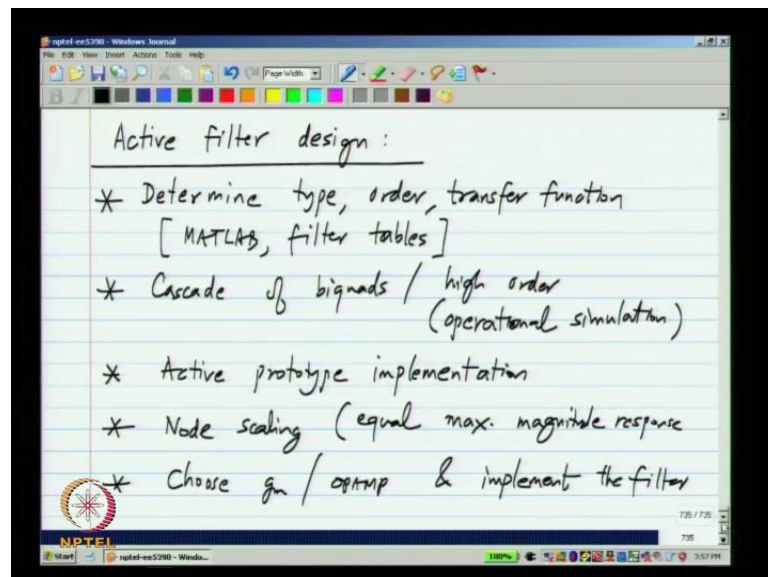 nptel-ee5390 - Windows Journal
File Edit View Insert Actions Tools Help
Page Width
B I
Active filter design :
* Determine type, order, transfer function
[ MATLAB, filter tables ]
* Cascade of biquads / high order
(operational simulation)
* Active prototype implementation
* Node scaling (equal max. magnitude response
* Choose gm / OPAMP & implement the filter
735 / 735
735
NPTEL
Start nptel-ee5390 - Windo... 100% 3:57 PM